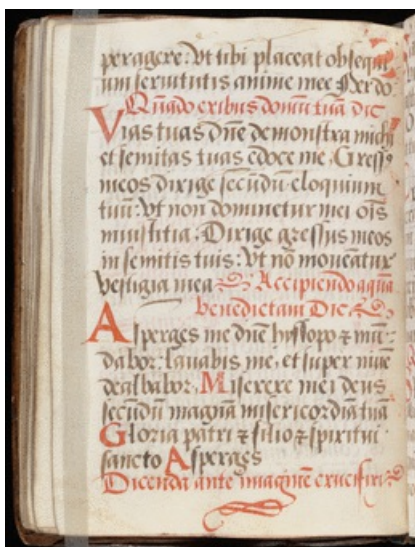 peragere: Vt tibi placeat obsequi
um seruitutis anime mee Per do
Quãdo exibus domũ tuã dic
Vias tuas dñe demonstra michi
et semitas tuas edoce me: Gressꝰ
meos dirige secũdũ eloquium
tuũ: Vt non dominetur mei oĩs
iniustitia: Dirige gressus meos
in semitis tuis: Vt nõ moueãtur
vestigia mea Accipiendo aquã
benedictam Dic
Asperges me dñe hyssopo ⁊ mũ
dabor: lauabis me, et super niuẽ
dealbabor. Miserere mei deus
secũdũ magnã misericordiã tuã
Gloria patri ⁊ filio ⁊ spiritui
sancto Asperges
Dicenda ante imaginẽ crucifixi